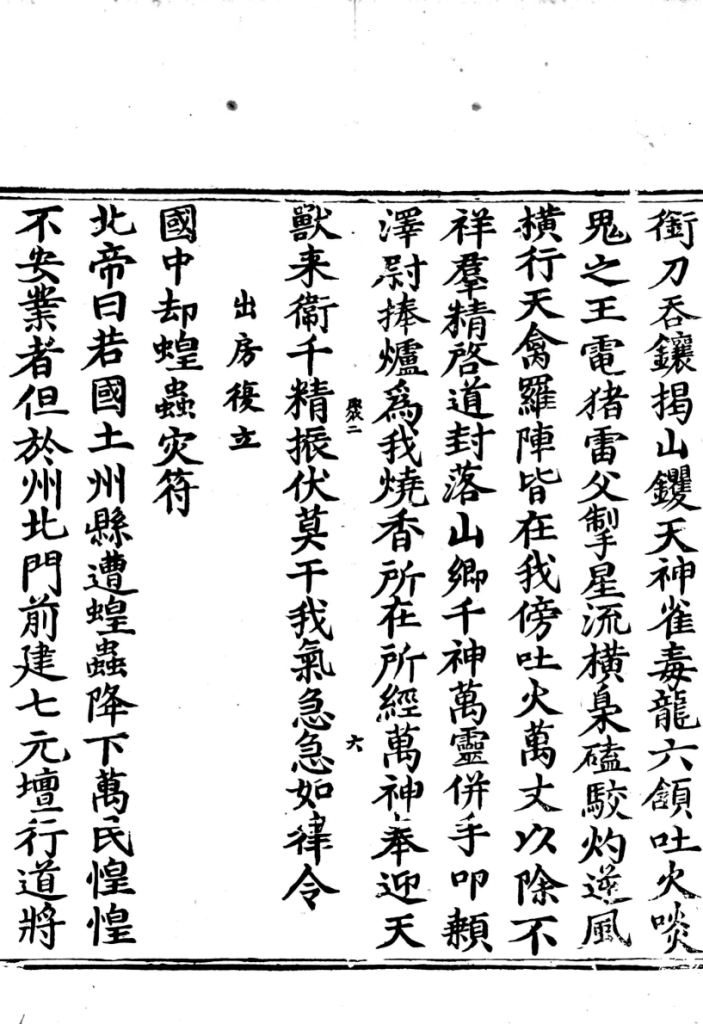 銜刀吞鑲揭山钁天神雀毒龍六頷吐火啖
鬼之王電猪雷父掣星流橫梟磕駮灼逆風
橫行天禽羅陣皆在我傍吐火萬丈以除不
祥羣精啓道封落山鄉千神萬靈併手叩頼
澤尉捧爐爲我燒香所在所經萬神奉迎天
聚二
六
獸来衛千精振伏莫干我氣急急如律令
出房復立
國中却蝗蟲灾符
北帝曰若國土州縣遭蝗蟲降下萬民惶惶
不安業者但於州北門前建七元壇行道將